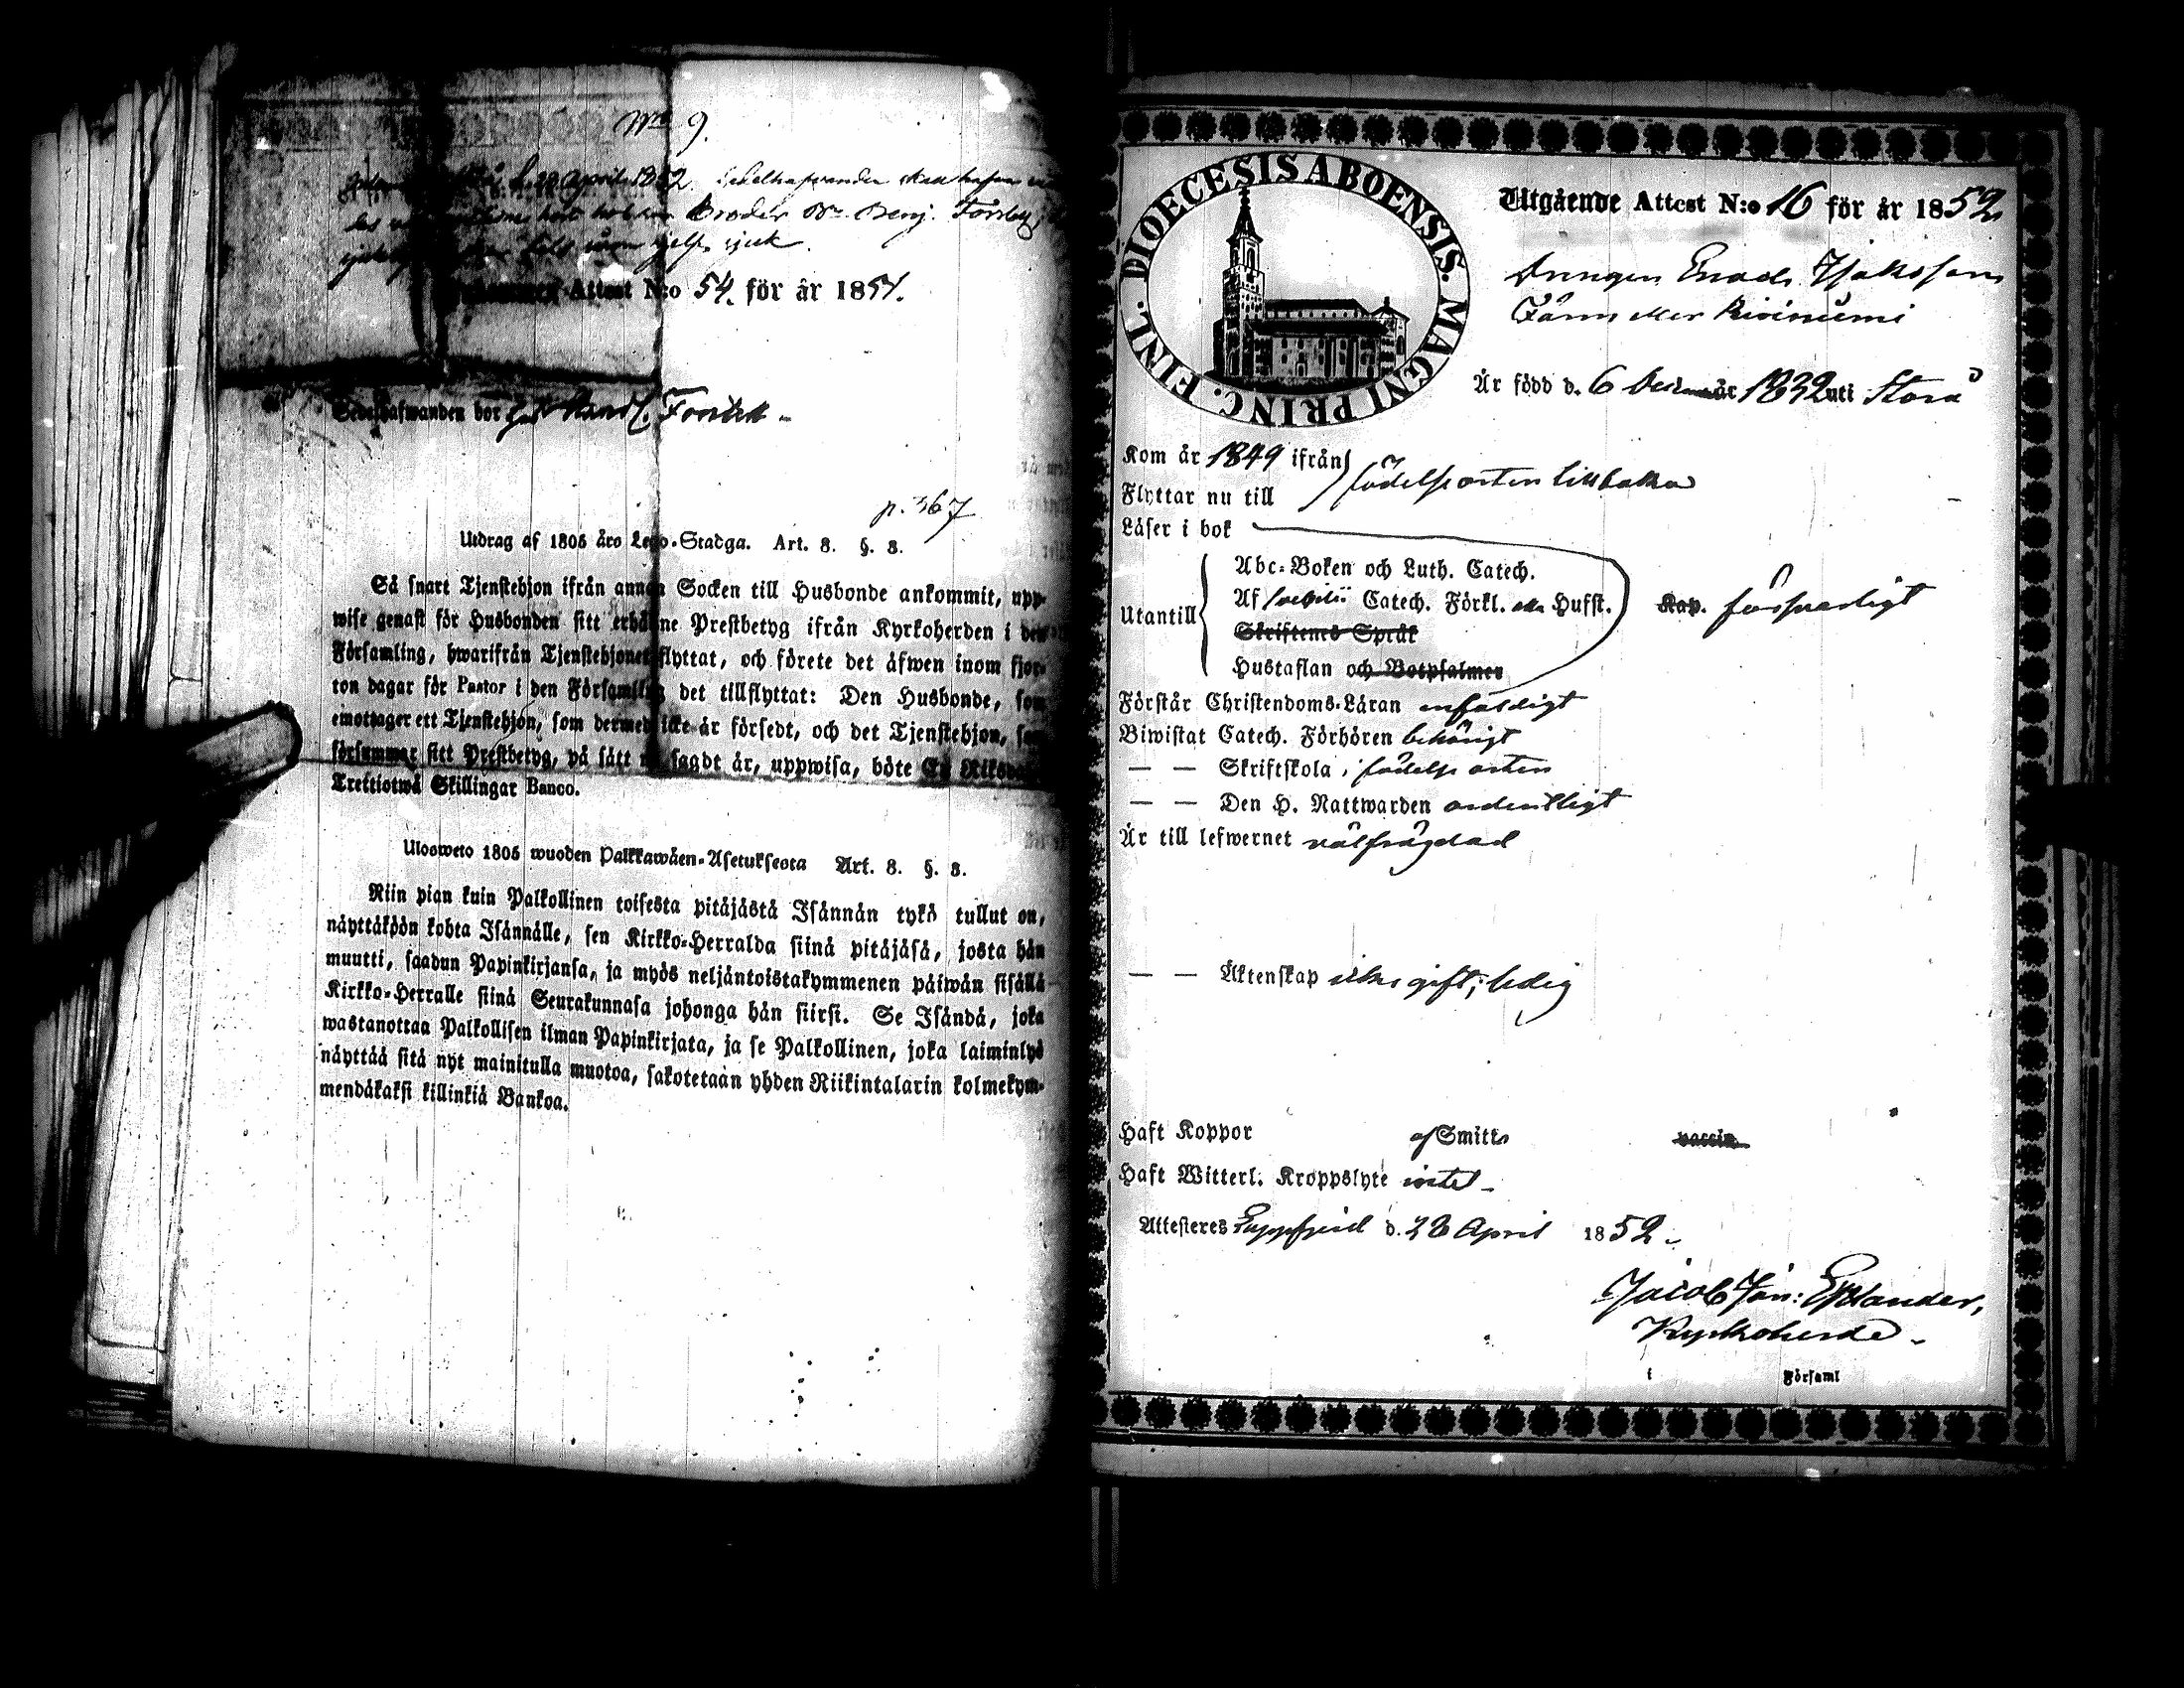 No 9.
d. 28 April 1852. Sedelhafvanden skall hafva
broder Bn Benj. Forsbet
sjuk.
Attest N:o 54. för år 1851.
Sedelhafwanden bor hos
p. 367
Utdrag af 1805 års Lego-Stadga. Art. 8. §. 3.
Så snart Tjenstehjon ifrån annan Socken till Husbonde ankommit, upp-
wise genast för Husbonden sitt erhållne Prestbetyg ifrån Kyrkoherden i den
Församling, hwarifrån Tjenstehjonet flyttat, och förete det äfwen inom fjor-
ton dagar för Pastor i den Församling det tillflyttat: Den Husbonde, som
emottager ett Tjenstehjon, som dermed icke är försedt, och det Tjenstehjon, som
försummar sitt Prestbetyg, på sätt nu sagdt är, uppwisa, böte En Riksdaler
Trettiotwå Skillingar Banco.
Ulosweto 1805 wuoden Palkkawäen-Asetuksesta Art. 8. §. 3.
Niin pian kuin Palkollinen toisesta pitäjästä Isännän tykö tullut on,
näyttäköön kohta Isännälle, sen Kirkko-Herralda siinä pitäjäsä, josta hän
muutti, saadun Papinkirjansa, ja myös neljäntoistakymmenen päiwän sisällä
Kirkko-Herralle siinä Seurakunnasa johonga hän siirsi. Se Isändä, joka
wastanottaa Palkollisen ilman Papinkirjata, ja se Palkollinen, joka laiminlyö
näyttää sitä nyt mainitulla muotoa, sakotetaan yhden Riikintalarin kolmekym-
mendäkaksi killinkiä Bankoa.
DIOECESIS ABOENSIS. MAGNI PRINC. FINL.
Utgående Attest N:o 16 för år 1852
Drängen Enoch Isaksson
Jären eller Riviniemi
Är född d. 6 December år 1832 uti Storå
Kom år 1849 ifrån
Flyttar nu till
födelseorten tillbaka
Läser i bok
Utantill
Abc-Boken och Luth. Catech.
Af Svebilii Catech. Förkl. eller Hufst.
Skriftenes Språk
Hustaflan och Botpsalmer
Kap. försvarligt
Förstår Christendoms-Läran enfaldigt
Biwistat Catech. Förhören behörigt
— — Skriftskola i födelseorten
— — Den H. Nattwarden ordentligt
Är till lefwernet välfrägdad
— — Äktenskap icke gift; ledig
Haft Koppor af Smitta vaccin
Haft Witterl. Kroppslyte intet
Attesteres Lappfjerd d. 28 April 1852.
Jacob Joh: Estlander,
Kyrkoherde.
i Församl